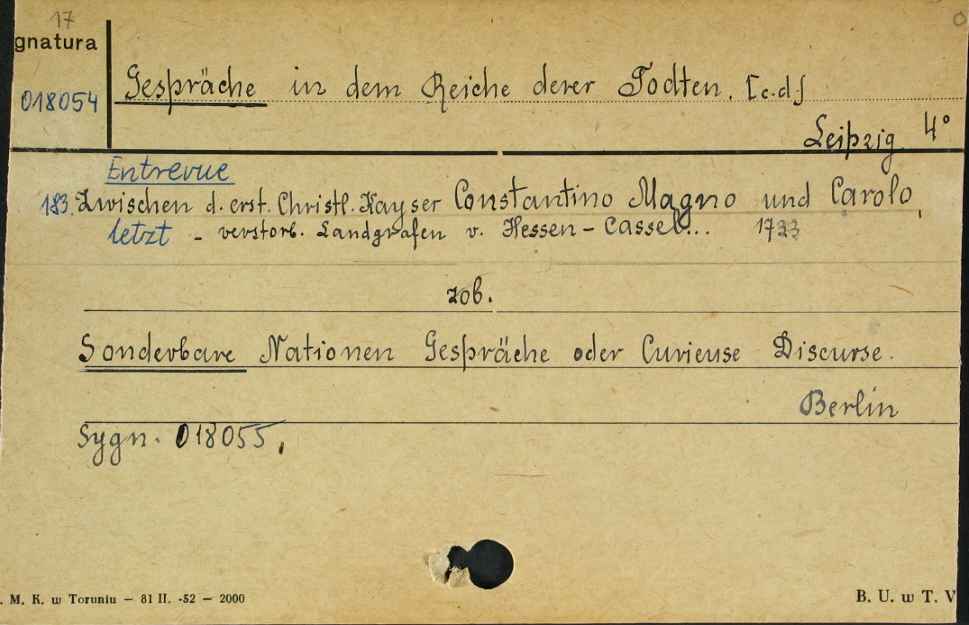 17
gnatura
018054
Gespräche in dem Reiche derer Todten. [c.d.]
Leipzig 4°
Entrevue
183. Zwischen d. erst. Christl. Kayser Constantino Magno und Carolo,
letzt - verstorb. Landgrafen v. Hessen-Cassel... 1733
zob.
Sonderbare Nationen Gespräche oder Curieuse Discurse.
Berlin
Sygn. 018055.
. M. K. w Toruniu — 81 II. -52 — 2000
B. U. w T. V